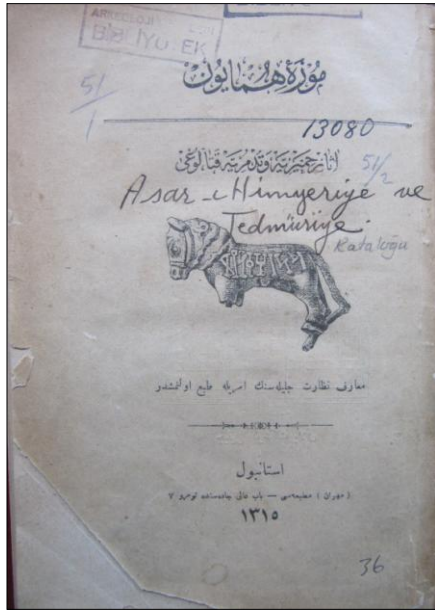 ARKEOLOJİ
BİBLİYOTEK
51/1
موزهٔ همایون
13080
آثار حمیریه وتدمریه قتالوغی
51/2
Asar-ı Himyeriye ve
Tedmüriye.
Kataloğu
معارف نظارت جلیله‌سنك امریله طبع اولنمشدر
استانبول
(مهران) مطبعه‌سی — باب عالی جاده‌سنده نومرو ٧
١٣١٥
36